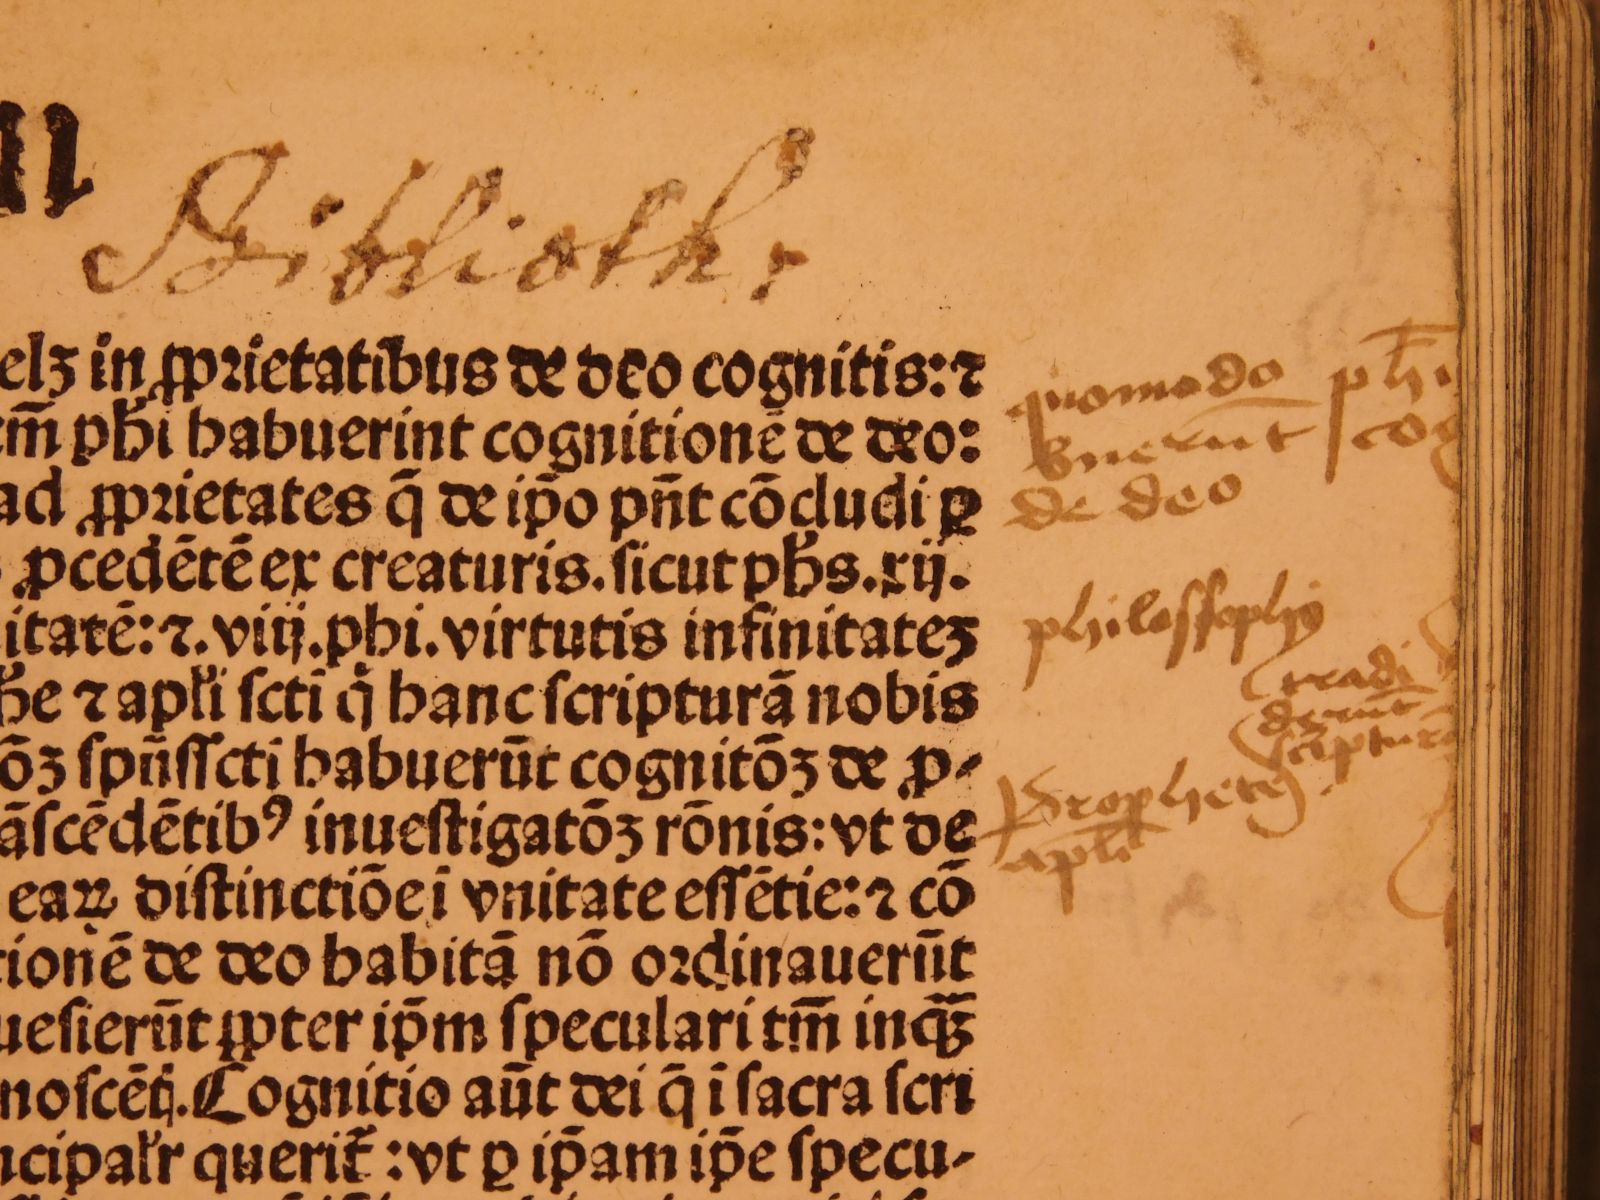 Biblioth.
elꝫ in ꝓprietatibus de deo cognitis: ⁊
em̄ pħi habuerint cognitionē de deo:
ad ꝓprietates q̄ de ip̄o pn̄t cōcludi ꝑ
ꝓcedētē ex creaturis. sicut pħs. xij.
itatē: ⁊. viij. phi. virtutis infinitateꝫ
ħe ⁊ apłi scti q̇ hanc scripturā nobis
ōꝫ spūſſcti habuerūt cognitōꝫ de ꝓ-
āſcēdētibꝰ inueſtigatōꝫ rōnis: vt de
eaꝝ diſtinctiōe ī vnitate eſſētie: ⁊ cō
tionē de deo habitā nō ordinauerūt
ueſierūt ꝓpter ip̄m ſpeculari tm̄ inqͣꝫ
noſcēti. Cognitio aūt dei q̄ ī ſacra ſcri
ncipałr querit̄: vt ꝑ ip̄am ip̄e ſpecu-
quomodo phi
de deo
philoſſophis
tradi
derūt
ſcripturā
Prophete
apłi